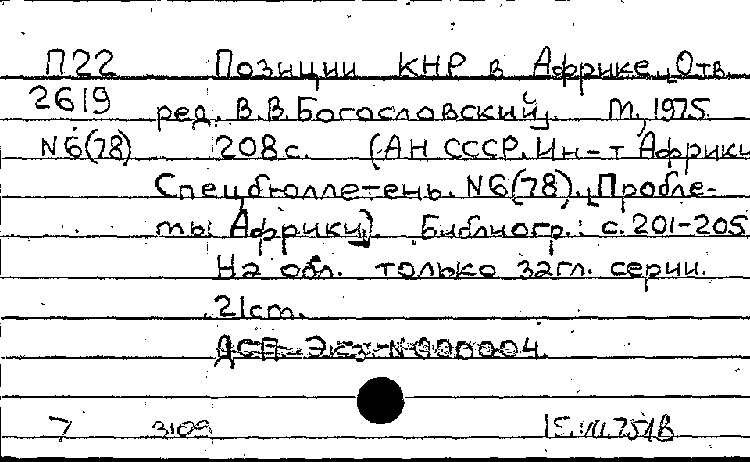 П22 Позиции КНР в Африке. [Отв.
2619 ред. В.В.Богословский]. М., 1975.
N6(78) 208с. (АН СССР. Ин-т Африки
Спецбюллетень. N6(78). [Пробле-
мы Африки]). Библиогр.: с. 201-205
На обл. только загл. серии.
21cm.
ДСП Экз. N000004.
7 3109 15.VII.75